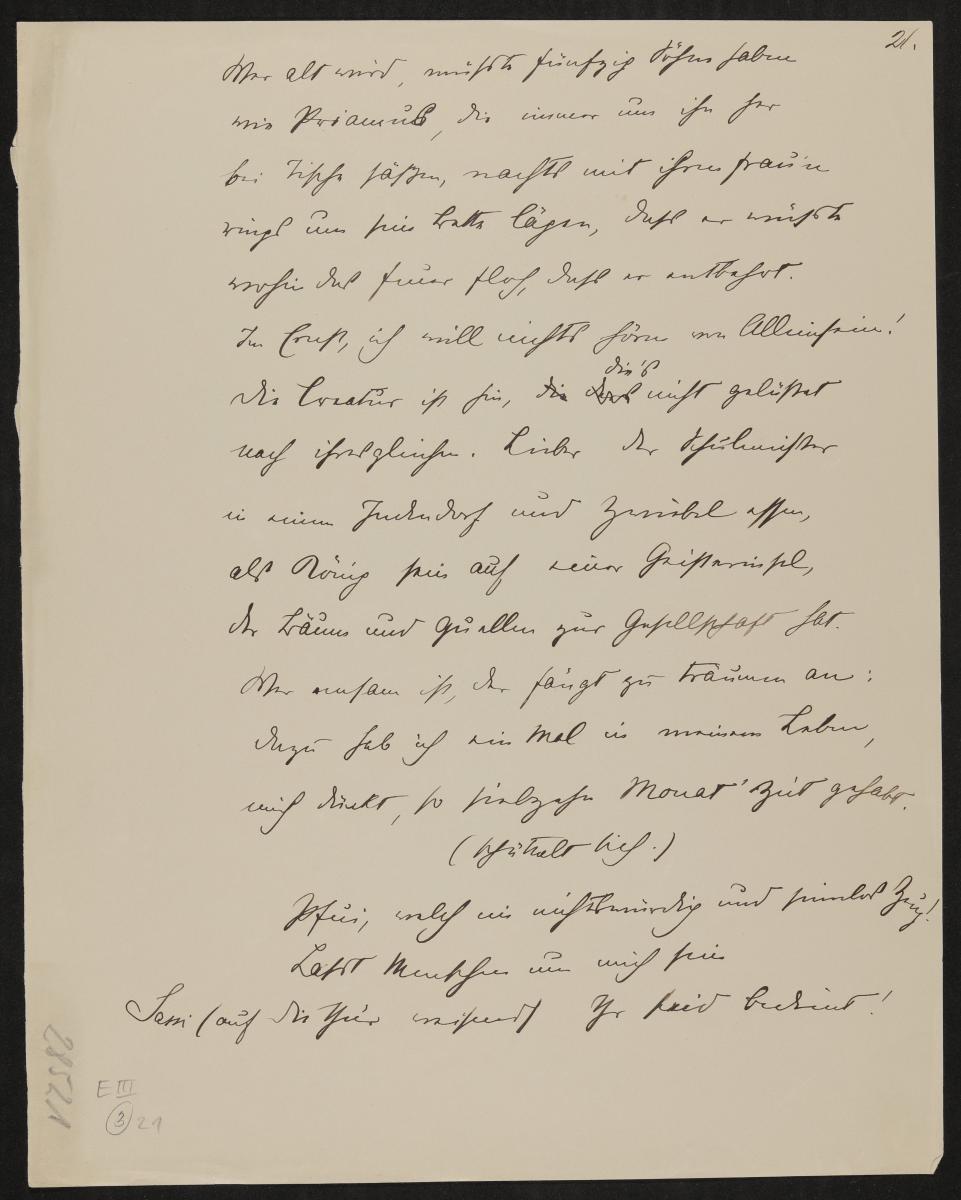 21.
Wer alt wird, müsste fünfzig Söhne haben
wie Priamus, die immer um ihn her
bei Tische säßen, nachts mit ihren Frauen
rings um sein Bette lägen, dass er wüsste
wohin das Feuer floh, dass er entbehrt.
Im Ernst, ich will nichts hören von Alleinsein!
die's
Die Creatur ist hin, die nicht gelüstet
nach ihresgleichen. Lieber der Schulmeister
in einem Judendorf und Zwiebel essen,
als König sein auf einer Geisterinsel,
der Bäume und Quellen zur Gesellschaft hat.
Wer einsam ist, der fängt zu träumen an:
dazu hab ich ein Mal in meinem Leben,
mich dünkt, so siebzehn Monat' Zeit gehabt.
(schüttelt sich.)
Pfui, welch ein nichtswürdig und sinnlos Zeug!
Lasst Menschen um mich sein
Sassi (auf die Thür weisend) Ihr seid bedient!
28521
E III
3 21